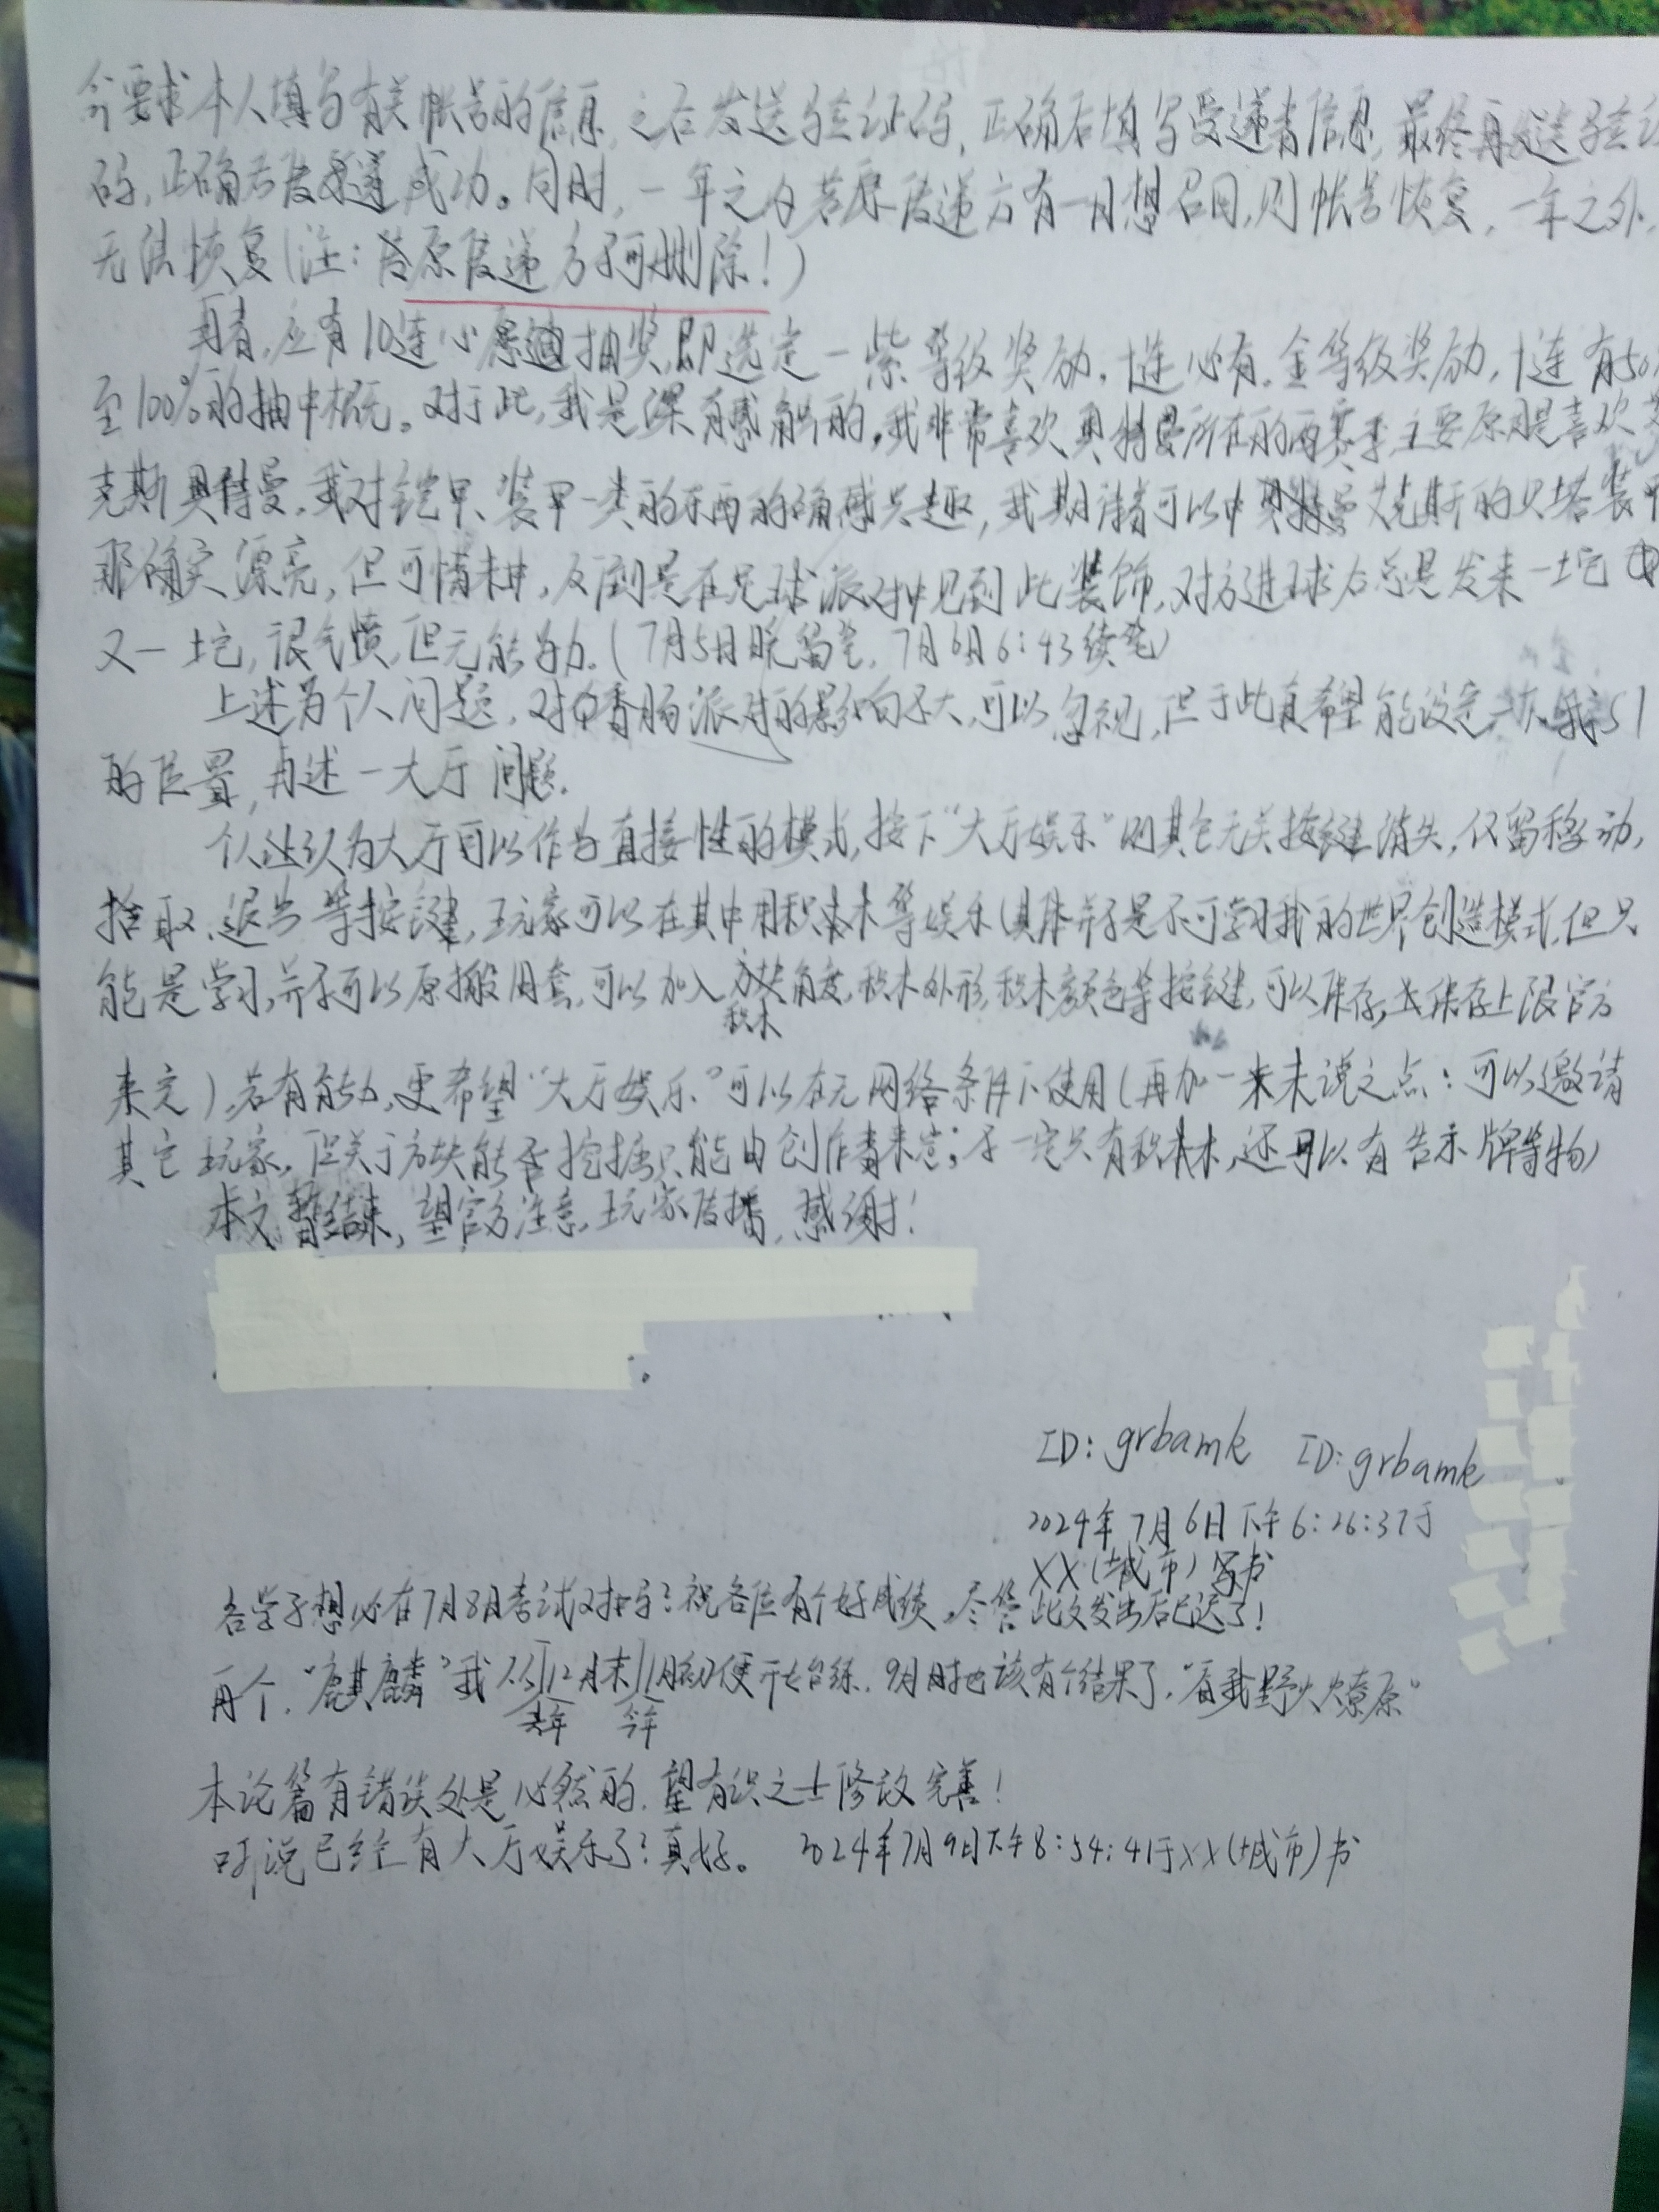 会要求本人填写有关帐号的信息,之后发送验证码,正确后填写受递者信息,最终再发送验证
码,正确后传递成功。同时,一年之内若原传递方有一日想召回,则帐号恢复,一年之外,
无法恢复(注:若原传递方不可删除!)
再者,应有10连心愿抽奖,即选定一紫等级奖励,1连必有。金等级奖励,1连有50%
至100%的抽中概况。对于此,我是深有感触的,我非常喜欢奥特曼所在的两赛季,主要原因是喜欢艾
克斯奥特曼,我对铠甲、装甲一类的东西的确感兴趣,我期待着可以中艾克斯的贝塔装甲
那确实漂亮,但可惜未中,反倒是在足球派对中见到此装饰,对方进球后总是发来一坨
又一坨,很气愤,但无能为力。(7月5日晚留笔,7月6日6:43续笔)
上述为个人问题,对香肠派对的影响不大,可以忽视,但于此真希望能设定
的位置,再述一大厅问题。
个人认为大厅可以作为直接性的模式,按下“大厅娱乐”则其它无关按键消失,仅留移动,
拾取、退出等按键,玩家可以在其中用积木等娱乐(具体并不是不可学习我的世界创造模式,但只
能是学习,并不可以原搬用套,可以加入方块角度,积木外形,积木颜色等按键,可以保存,其保存上限官方
积木
来定),若有能力,更希望“大厅娱乐”可以在无网络条件下使用(再加一条未说之点:可以邀请
其它玩家,但关于方块能否挖掘只能由创作者来定;不一定只有积木,还可以有告示牌等物)
本文暂结束,望官方注意,玩家传播,感谢!
ID: grbamk ID: grbamk
2024年7月6日下午6:26:37于
XX(城市)写书
各学子想必在7月8日考试对吗?祝各位有个好成绩,尽管此文发出后已迟了!
再个,“麒麟”我从12月末1月初便开始练,9月时也该有个结果了,“看我野火燎原”
去年 今年
本论篇有错误处是必然的,望有识之士修改完善!
听说已经有大厅娱乐了?真好。 2024年7月9日下午8:54:41于XX(城市)书